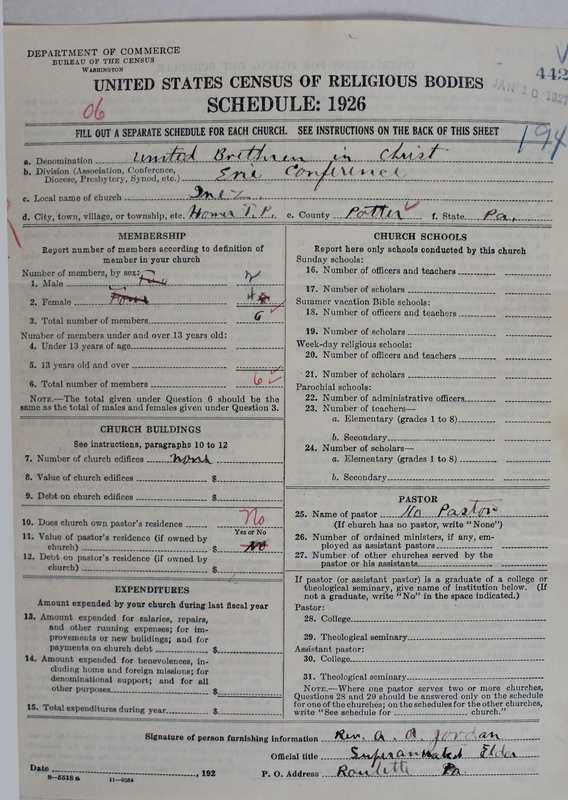 DEPARTMENT OF COMMERCE
BUREAU OF THE CENSUS
WASHINGTON
442
JAN 10 1927
UNITED STATES CENSUS OF RELIGIOUS BODIES
SCHEDULE: 1926
06
194
FILL OUT A SEPARATE SCHEDULE FOR EACH CHURCH. SEE INSTRUCTIONS ON THE BACK OF THIS SHEET
a. Denomination United Brethren in Christ
b. Division (Association, Conference, Diocese, Presbytery, Synod, etc.) Erie Conference
c. Local name of church Inez
d. City, town, village, or township, etc. Homer T.P. e. County Potter f. State Pa.
MEMBERSHIP
Report number of members according to definition of
member in your church
Number of members, by sex:
1. Male Two 2
2. Female Four 4
3. Total number of members 6
Number of members under and over 13 years old:
4. Under 13 years of age
5. 13 years old and over
6. Total number of members 6
NOTE.—The total given under Question 6 should be
same as the total of males and females given under Question 3.
CHURCH BUILDINGS
See instructions, paragraphs 10 to 12
7. Number of church edifices none
8. Value of church edifices $
9. Debt on church edifices $
10. Does church own pastor's residence No
Yes or No
11. Value of pastor's residence (if owned by
church) $ No
12. Debt on pastor's residence (if owned by
church) $
EXPENDITURES
Amount expended by your church during last fiscal year
13. Amount expended for salaries, repairs,
and other running expenses; for im-
provements or new buildings; and for
payments on church debt $
14. Amount expended for benevolences, in-
cluding home and foreign missions; for
denominational support; and for all
other purposes $
15. Total expenditures during year $
CHURCH SCHOOLS
Report here only schools conducted by this church
Sunday schools:
16. Number of officers and teachers
17. Number of scholars
Summer vacation Bible schools:
18. Number of officers and teachers
19. Number of scholars
Week-day religious schools:
20. Number of officers and teachers
21. Number of scholars
Parochial schools:
22. Number of administrative officers
23. Number of teachers—
a. Elementary (grades 1 to 8)
b. Secondary
24. Number of scholars—
a. Elementary (grades 1 to 8)
b. Secondary
PASTOR
25. Name of pastor No Pastor
(If church has no pastor, write "None")
26. Number of ordained ministers, if any, em-
ployed as assistant pastors
27. Number of other churches served by the
pastor or his assistants
If pastor (or assistant pastor) is a graduate of a college or
theological seminary, give name of institution below. (If
not a graduate, write "No" in the space indicated.)
Pastor:
28. College
29. Theological seminary
Assistant pastor:
30. College
31. Theological seminary
NOTE.—Where one pastor serves two or more churches,
Questions 28 and 29 should be answered only on the schedule
for one of the churches; on the schedules for the other churches,
write "See schedule for church."
Signature of person furnishing information Rev. A. A. Jordan
Official title Superannuated Elder
Date , 192 P. O. Address Roulette Pa.
8—5518 a